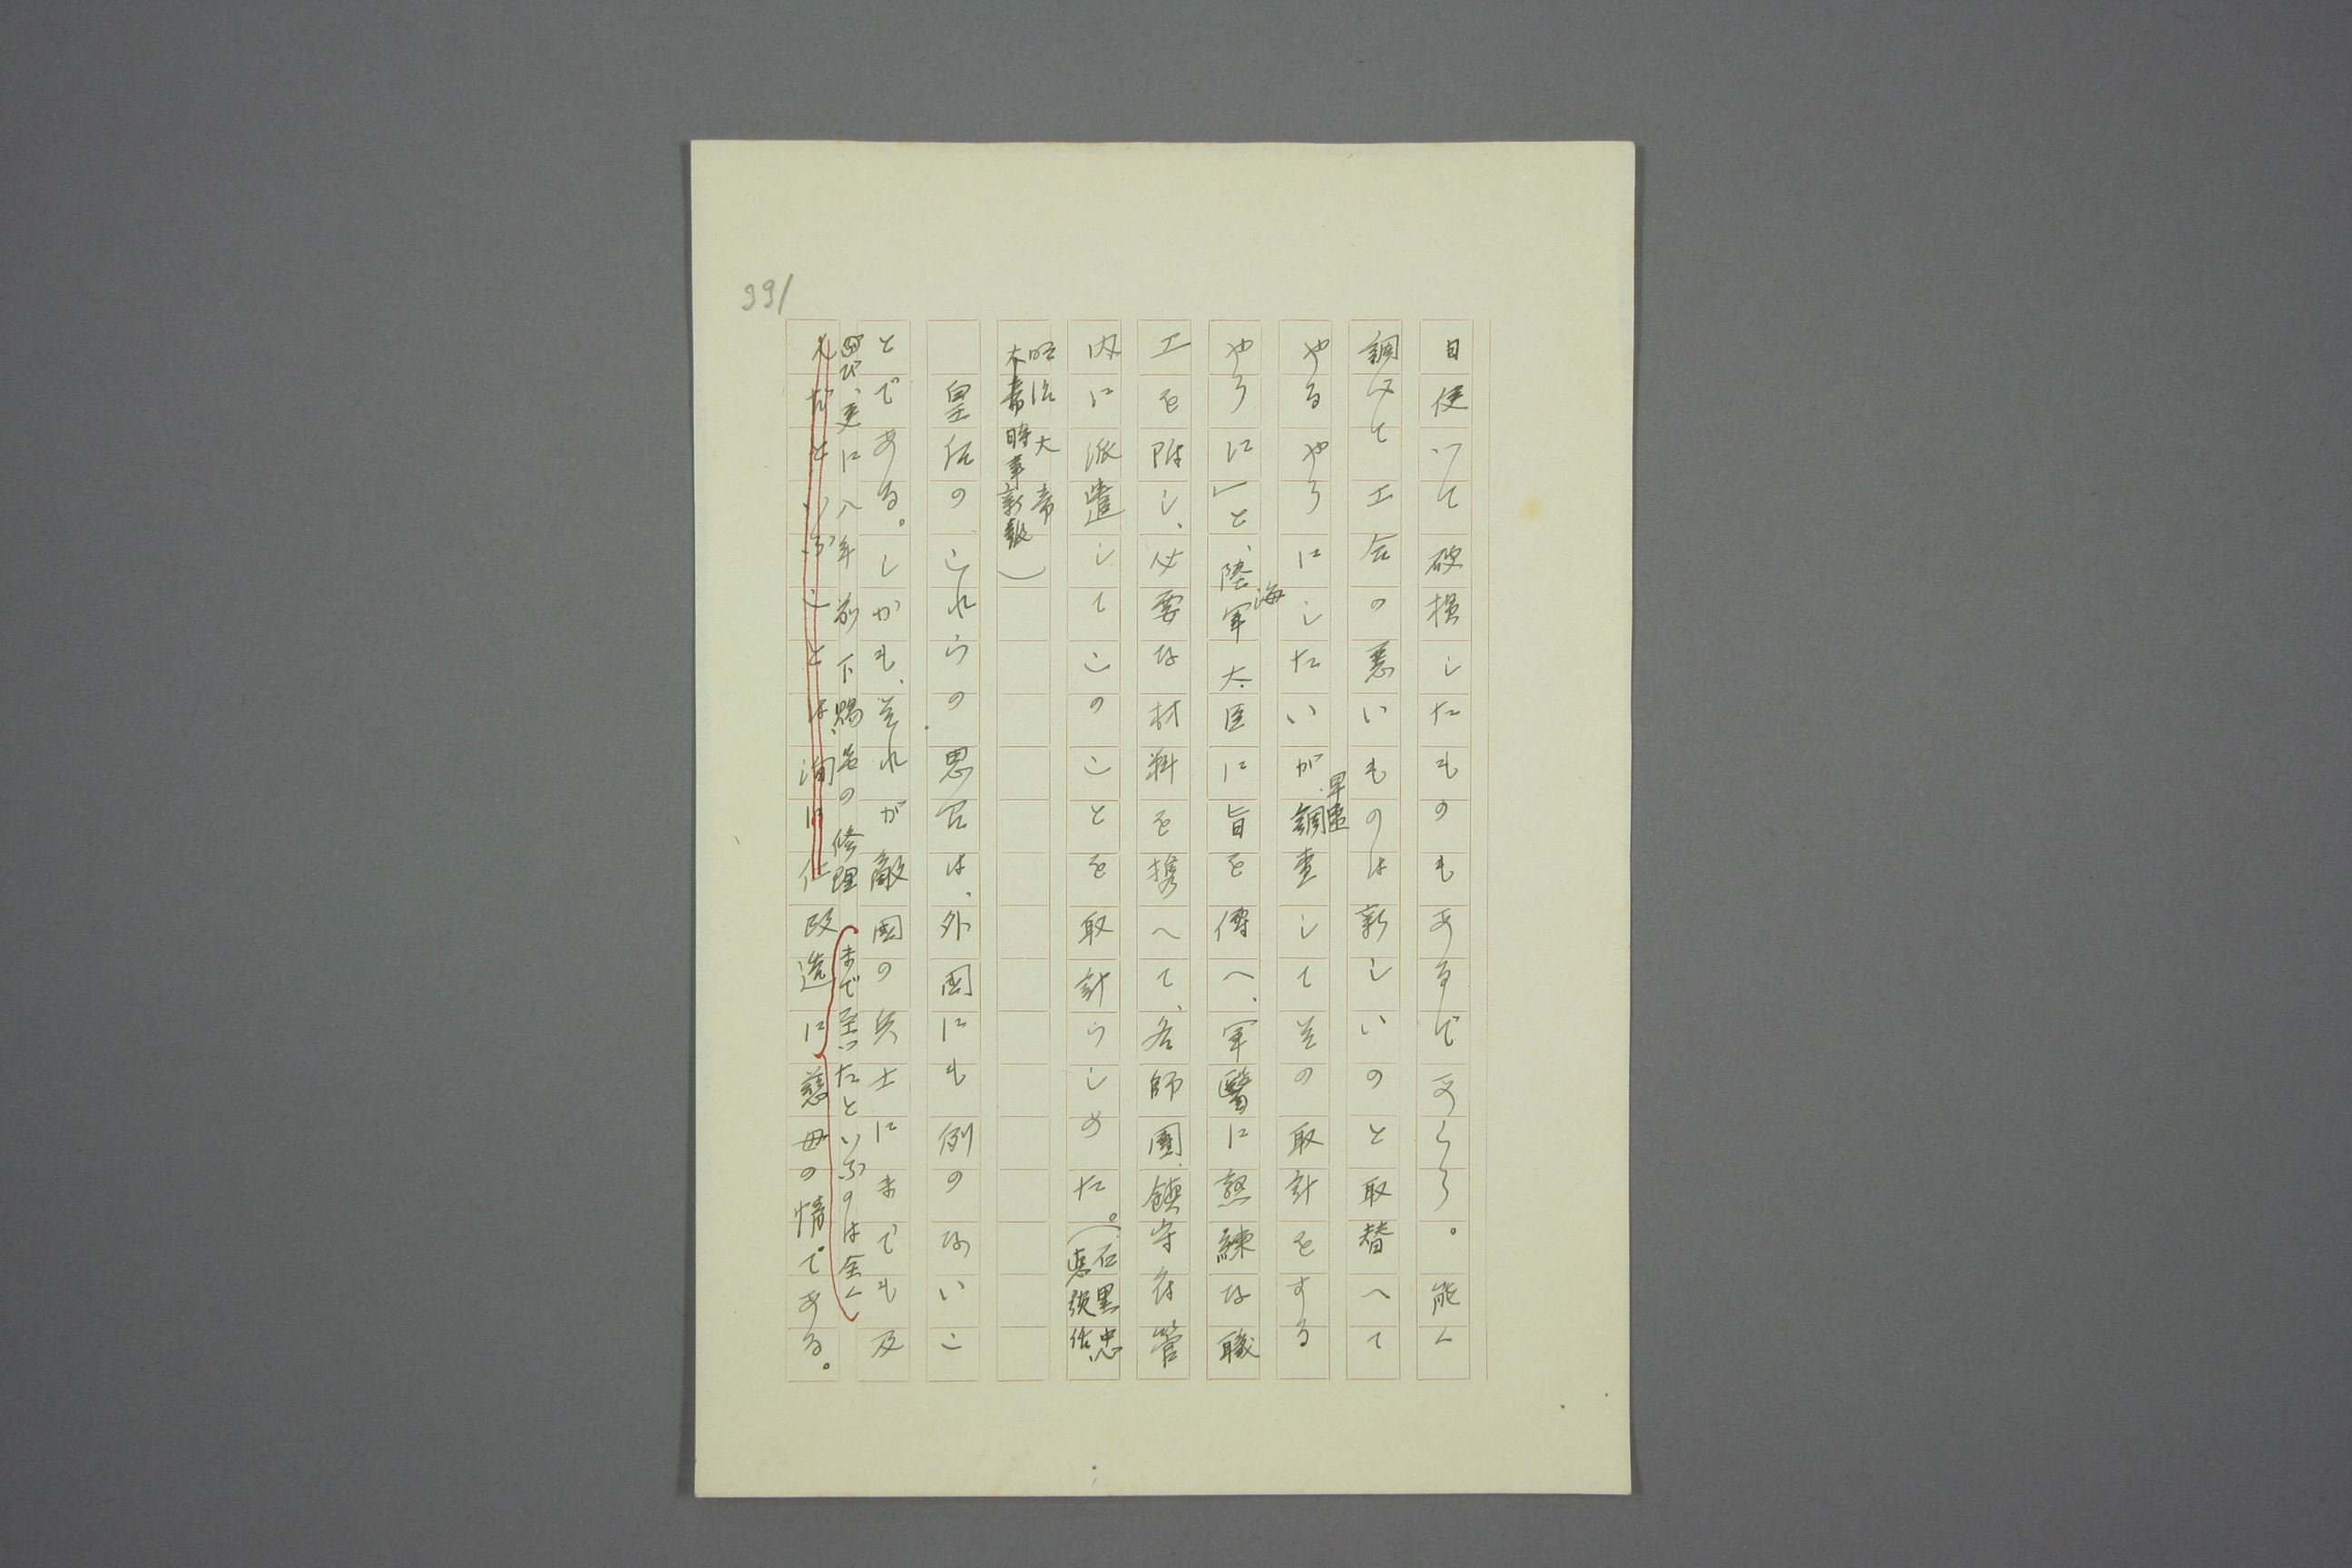 391
日使つて破損したものもあるであらう。能く
調べて工合の悪いものは新しいのと取替へて
やるやうにしたいが、早速調査して其の取計をする
やうに」と、陸海軍大臣に旨を傳へ、軍醫に熟練な職
工を附し、必要な材料を携へて、各師團、鎮守府管
内に派遣してこのことを取計らしめた。(石黒忠悳頌話、
明治大帝 時事新報)
皇后のこれらの思召は、外國にも例のないこ
とである。しかも、其れが敵國の兵士にまでも及
び、更に八年前下賜品の修理
まで至つたといふのは全く
んだといふことは、洵に仁
改造に慈母の情である。